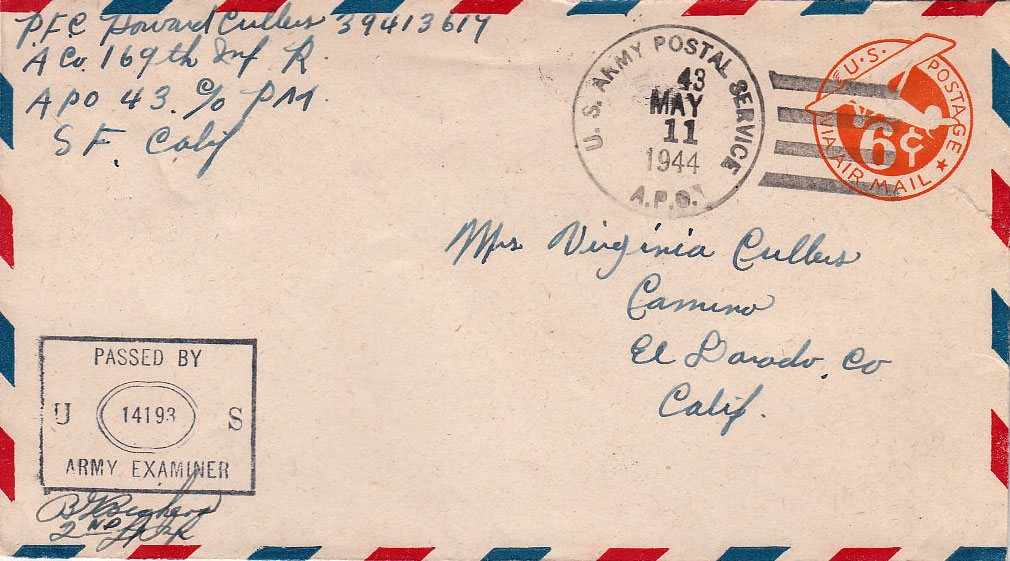 P.F.C Howard Cullers 39413617
A Co. 169th Inf R.
APO 43. c/o PM.
SF. Calif
U. S. ARMY POSTAL SERVICE
43
MAY
11
1944
A.P.O.
U.S. POSTAGE
VIA AIR MAIL
6¢
Mrs Virginia Cullers
Camino
El Dorado, Co
Calif.
PASSED BY
U 14193 S
ARMY EXAMINER
2ND